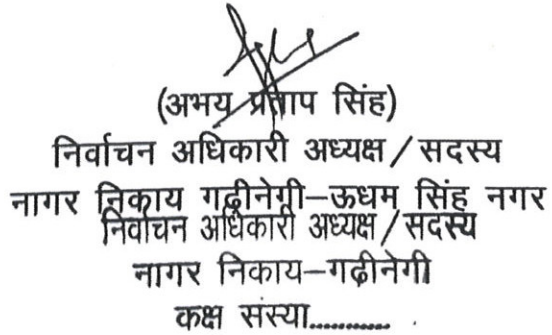 (अभय प्रताप सिंह)
निर्वाचन अधिकारी अध्यक्ष/सदस्य
नागर निकाय गढ़ीनेगी–ऊधम सिंह नगर
निर्वाचन अधिकारी अध्यक्ष/सदस्य
नागर निकाय–गढीनेगी
कक्ष संस्या............